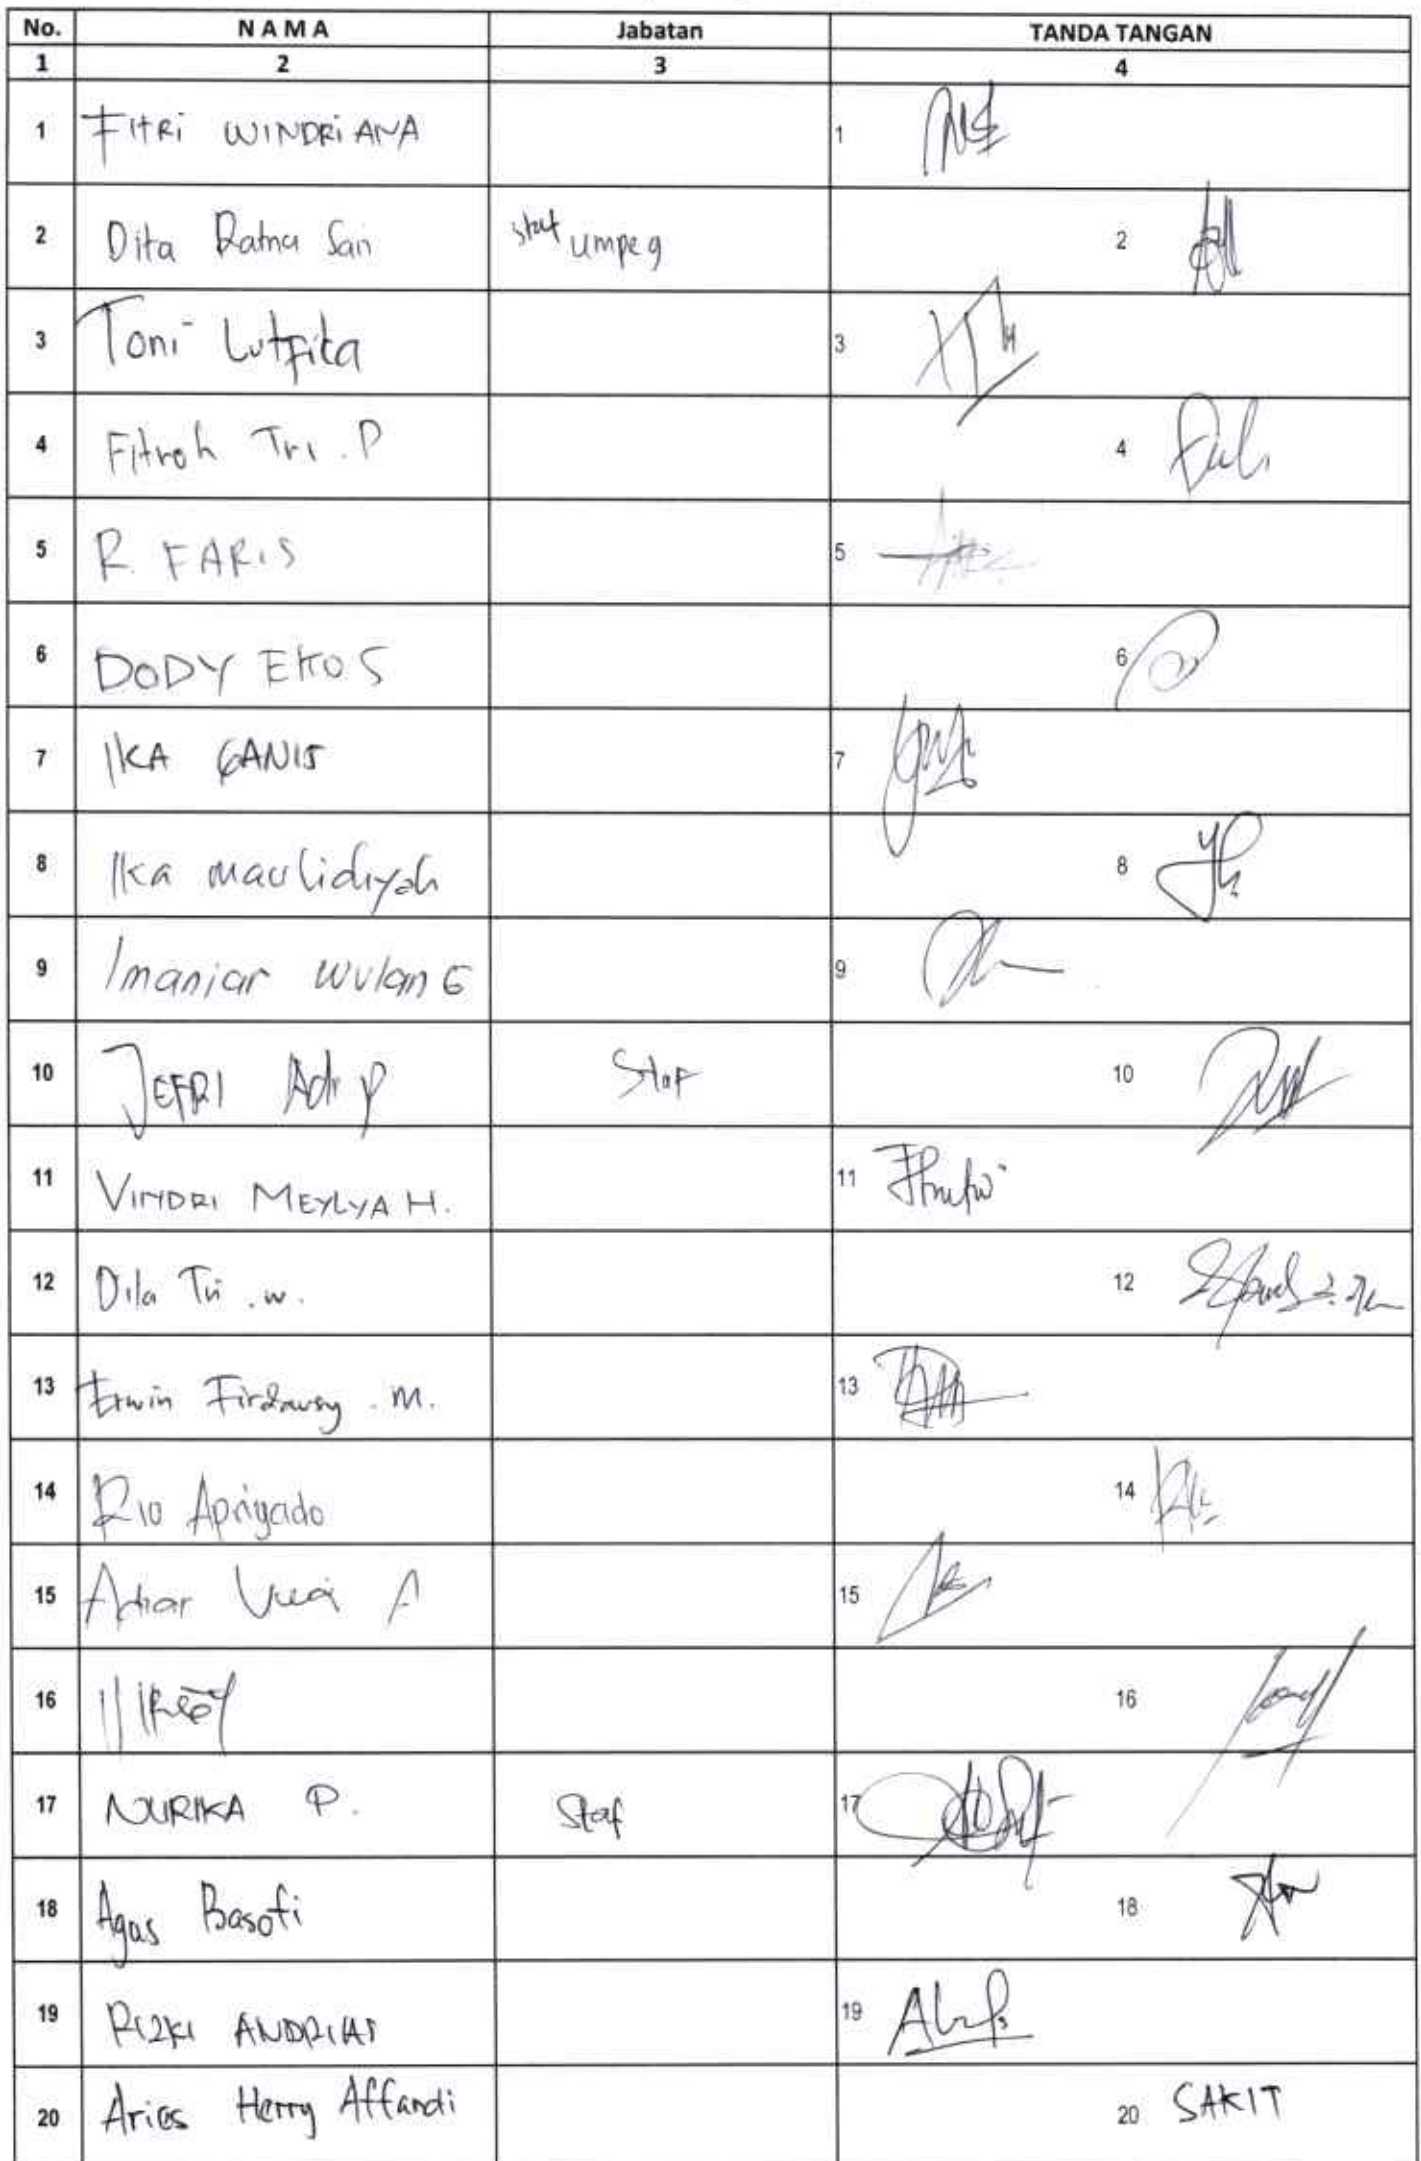 No. N A M A Jabatan TANDA TANGAN
1 2 3 4
1 FITRI WINDRIANA 1
2 Dita Ratna Sari staf umpeg 2
3 Toni Lutfita 3
4 Fitroh Tri . P 4
5 R. FARIS 5
6 DODY EKO S 6
7 IKA GANIS 7
8 Ika maulidiyah 8
9 Imaniar Wulan G 9
10 JEFRI Adi P Staf 10
11 VINDRI MEYLYA H. 11
12 Dila Tri . w. 12
13 Erwin Firdausy . M. 13
14 Rio Apriyado 14
15 A 15
16 16
17 NURIKA P. Staf 17
18 Agus Basofi 18
19 RIZKI ANDRIAS 19
20 Aries Herry Affandi 20 SAKIT